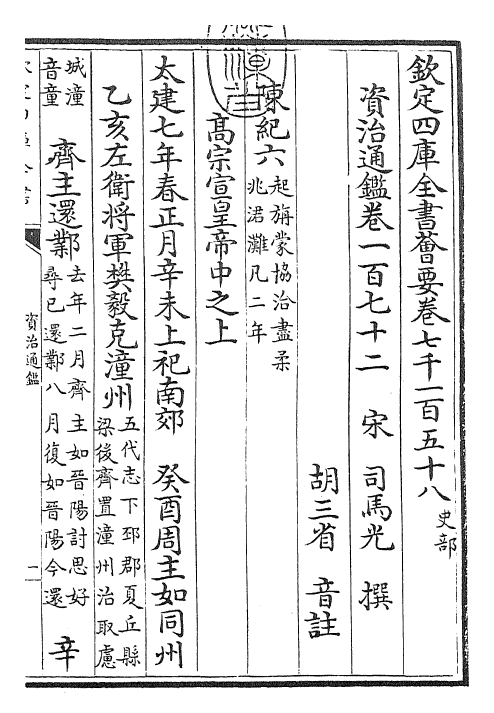 欽定四庫全書薈要卷七千一百五十八 史部
資治通鑑卷一百七十二 宋 司馬光 撰
胡三省 音註
陳紀六 起旃蒙協洽盡柔兆涒灘凡二年
高宗宣皇帝中之上
太建七年春正月辛未上祀南郊 癸酉周主如同州
乙亥左衛將軍樊毅克潼州 五代志下邳郡夏丘縣梁後齊置潼州治取慮
城潼音童 齊主還鄴 去年二月齊主如晉陽討思好尋已還鄴八月復如晉陽今還 辛
資治通鑑
一